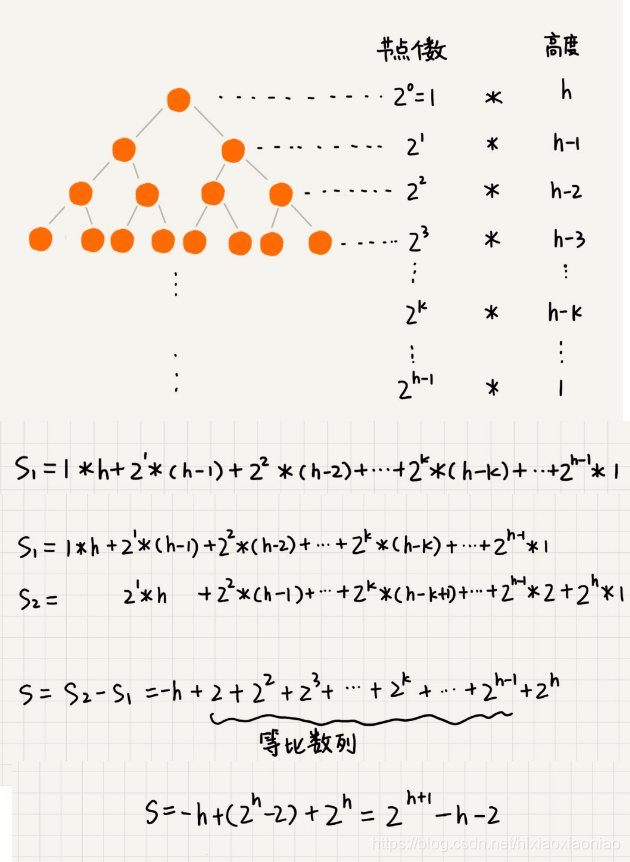 节点个数 高度
2⁰=1 * h
2¹ * h-1
2² * h-2
2³ * h-3
2ᵏ * h-k
2ʰ⁻¹ * 1
S₁=1*h+2¹*(h-1)+2²*(h-2)+…+2ᵏ*(h-k)+…+2ʰ⁻¹*1
S₁=1*h+2¹*(h-1)+2²*(h-2)+…+2ᵏ*(h-k)+…+2ʰ⁻¹*1
S₂= 2¹*h +2²*(h-1)+…+2ᵏ*(h-k+1)+…+2ʰ⁻¹*2+2ʰ*1
S=S₂-S₁=-h+2+2²+2³+…+2ᵏ+…+2ʰ⁻¹+2ʰ
等比数列
S=-h+(2ʰ-2)+2ʰ=2ʰ⁺¹-h-2
https://blog.csdn.net/hixiaoxiaoniao